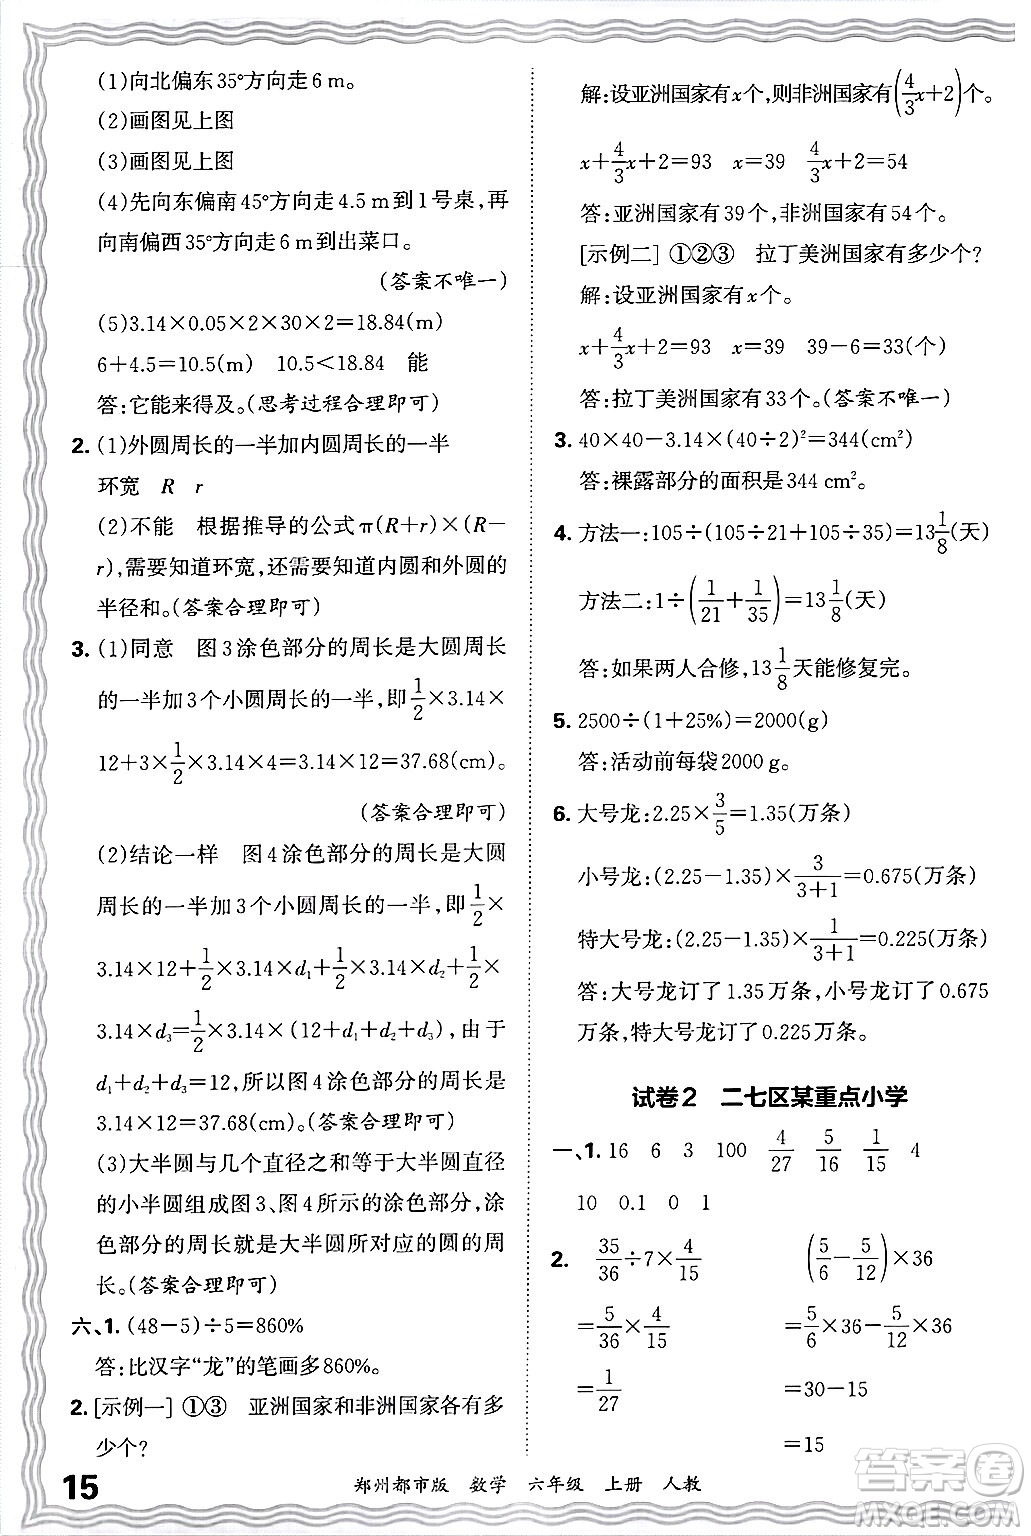 (1)向北偏东35°方向走6 m。
(2)画图见上图
(3)画图见上图
(4)先向东偏南45°方向走4.5 m到1号桌,再
向南偏西35°方向走6 m到出菜口。
(答案不唯一)
(5)3.14×0.05×2×30×2=18.84(m)
6+4.5=10.5(m)　10.5<18.84　能
答:它能来得及。(思考过程合理即可)
2. (1)外圆周长的一半加内圆周长的一半
环宽　R　r
(2)不能　根据推导的公式π(R+r)×(R-
r),需要知道环宽,还需要知道内圆和外圆的
半径和。(答案合理即可)
3. (1)同意　图3涂色部分的周长是大圆周长
的一半加3个小圆周长的一半,即1/2×3.14×
12+3×1/2×3.14×4=37.68(cm)。
(答案合理即可)
(2)结论一样　图4涂色部分的周长是大圆
周长的一半加3个小圆周长的一半,即1/2×
3.14×12+1/2×3.14×d₁+1/2×3.14×d₂+1/2×
3.14×d₃=1/2×3.14×(12+d₁+d₂+d₃),由于
d₁+d₂+d₃=12,所以图4涂色部分的周长是
3.14×12=37.68(cm)。(答案合理即可)
(3)大半圆与几个直径之和等于大半圆直径
的小半圆组成图3、图4所示的涂色部分,涂
色部分的周长就是大半圆所对应的圆的周
长。(答案合理即可)
六、1. (48-5)÷5=860%
答:比汉字“龙”的笔画多860%。
2. [示例一] ①③　亚洲国家和非洲国家各有多
少个?
解:设亚洲国家有x个,则非洲国家有(4/3x+2)个。
x+4/3x+2=93　x=39　4/3x+2=54
答:亚洲国家有39个,非洲国家有54个。
[示例二] ①②③　拉丁美洲国家有多少个?
解:设亚洲国家有x个。
x+4/3x+2=93　x=39　39-6=33(个)
答:拉丁美洲国家有33个。(答案不唯一)
3. 40×40-3.14×(40÷2)²=344(cm²)
答:裸露部分的面积是344 cm²。
4. 方法一:105÷(105÷21+105÷35)=13 1/8(天)
方法二:1÷(1/21+1/35)=13 1/8(天)
答:如果两人合修,13 1/8天能修复完。
5. 2500÷(1+25%)=2000(g)
答:活动前每袋2000 g。
6. 大号龙:2.25×3/5=1.35(万条)
小号龙:(2.25-1.35)×3/(3+1)=0.675(万条)
特大号龙:(2.25-1.35)×1/(3+1)=0.225(万条)
答:大号龙订了1.35万条,小号龙订了0.675
万条,特大号龙订了0.225万条。
试卷2　二七区某重点小学
一、1. 16　6　3　100　4/27　5/16　1/15　4
10　0.1　0　1
2. 35/36÷7×4/15　(5/6-5/12)×36
=5/36×4/15　=5/6×36-5/12×36
=1/27　=30-15
=15
15　郑州都市版　数学　六年级　上册　人教
答案圈
MXQE.COM